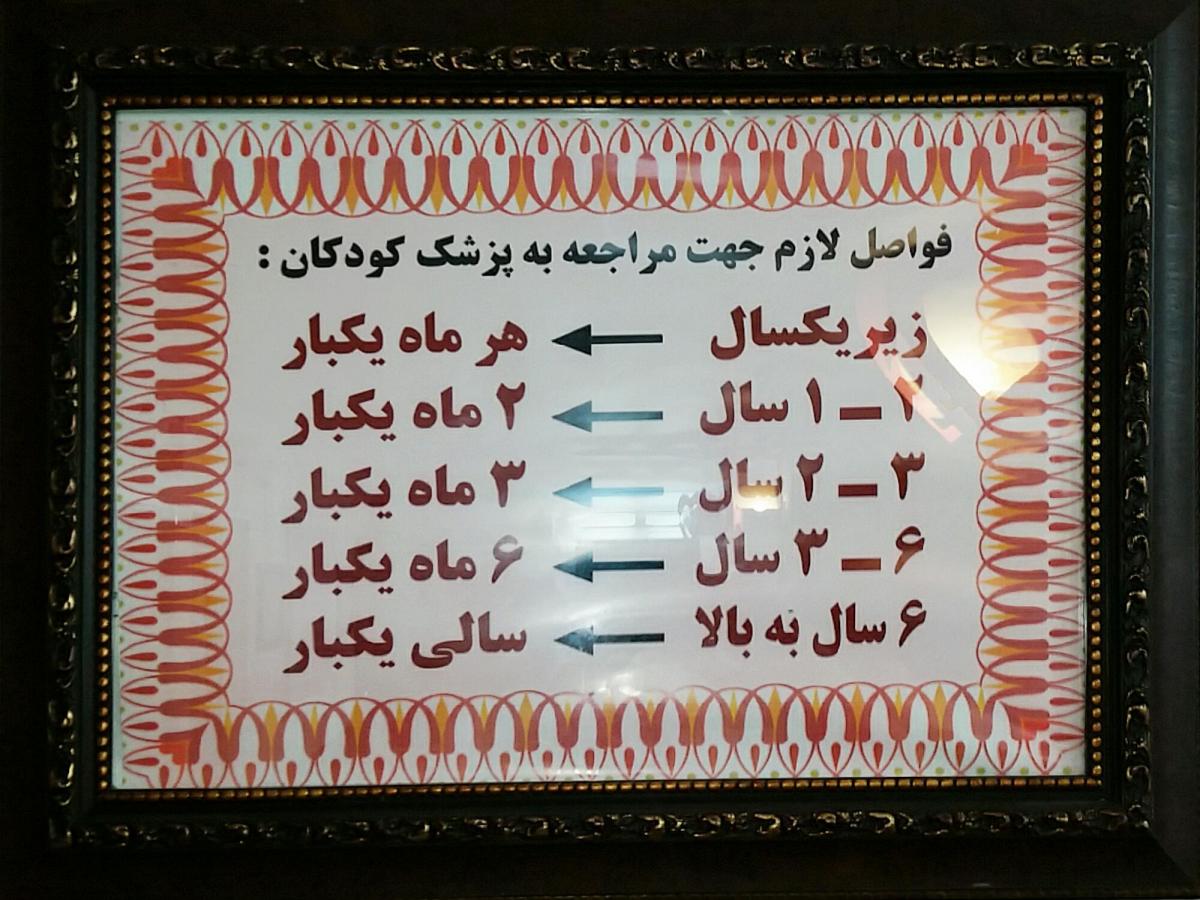 فواصل لازم جهت مراجعه به پزشک کودکان :
زیر یکسال ← هر ماه یکبار
۲ – ۱ سال ← ۲ ماه یکبار
۳ – ۲ سال ← ۳ ماه یکبار
۶ – ۳ سال ← ۶ ماه یکبار
۶ سال به بالا ← سالی یکبار